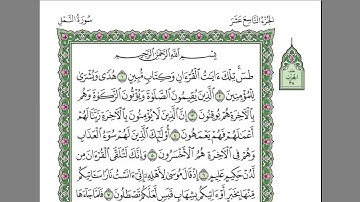 سُورَةُ النَّمْلِ
الجُزْءُ التَّاسِعَ عَشَرَ
بِسْمِ اللَّهِ الرَّحْمَٰنِ الرَّحِيمِ
طسٓ تِلْكَ ءَايَٰتُ الْقُرْءَانِ وَكِتَابٍ مُّبِينٍ ١ هُدًى وَبُشْرَىٰ
لِلْمُؤْمِنِينَ ٢ الَّذِينَ يُقِيمُونَ الصَّلَوٰةَ وَيُؤْتُونَ الزَّكَوٰةَ وَهُم
بِالْءَاخِرَةِ هُمْ يُوقِنُونَ ٣ إِنَّ الَّذِينَ لَا يُؤْمِنُونَ بِالْءَاخِرَةِ زَيَّنَّا لَهُمْ
أَعْمَٰلَهُمْ فَهُمْ يَعْمَهُونَ ٤ أُو۟لَٰٓئِكَ الَّذِينَ لَهُمْ سُوٓءُ الْعَذَابِ
وَهُمْ فِي الْءَاخِرَةِ هُمُ الْأَخْسَرُونَ ٥ وَإِنَّكَ لَتُلَقَّى الْقُرْءَانَ مِن
لَّدُنْ حَكِيمٍ عَلِيمٍ ٦ إِذْ قَالَ مُوسَىٰ لِأَهْلِهِۦٓ إِنِّيٓ ءَانَسْتُ نَارًا سَـَٔاتِيكُم
مِّنْهَا بِخَبَرٍ أَوْ ءَاتِيكُم بِشِهَابٍ قَبَسٍ لَّعَلَّكُمْ تَصْطَلُونَ ٧ فَلَمَّا جَآءَهَا